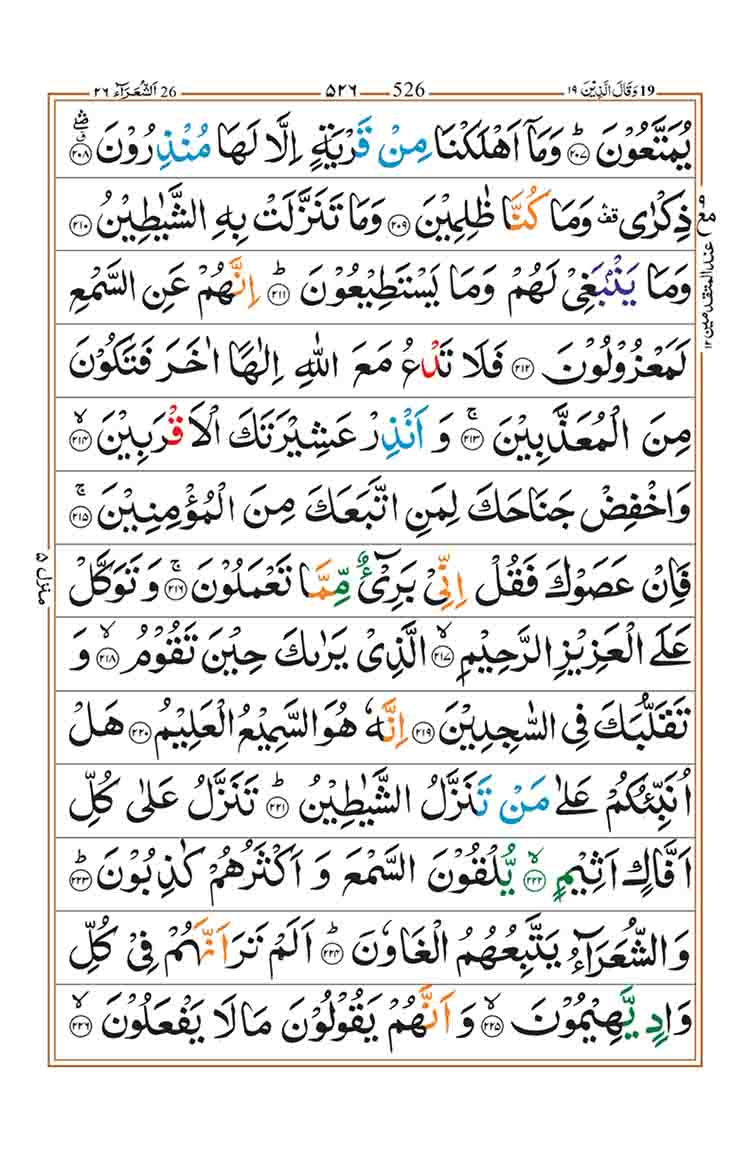 19 وَقَالَ الَّذِيْنَ ١٩ 526 ۵۲۶ 26 اَلشُّعَرَآء ٢٦
يُمَتَّعُوْنَ ؕ‏﴿۲۰۷﴾ وَمَاۤ اَهْلَكْنَا مِنْ قَرْيَةٍ اِلَّا لَهَا مُنْذِرُوْنَ ‏﴿۲۰۸﴾
ذِكْرٰى ۛ وَمَا كُنَّا ظٰلِمِيْنَ ‏﴿۲۰۹﴾ وَمَا تَنَزَّلَتْ بِهِ الشَّيٰطِيْنُ ‏﴿۲۱۰﴾
وَمَا يَنْۢبَغِىْ لَهُمْ وَمَا يَسْتَطِيْعُوْنَ ؕ‏﴿۲۱۱﴾ اِنَّهُمْ عَنِ السَّمْعِ
لَمَعْزُوْلُوْنَ ‏﴿۲۱۲﴾ فَلَا تَدْعُ مَعَ اللّٰهِ اِلٰهًا اٰخَرَ فَتَكُوْنَ
مِنَ الْمُعَذَّبِيْنَ ۚ‏﴿۲۱۳﴾ وَ اَنْذِرْ عَشِيْرَتَكَ الْاَقْرَبِيْنَ ۙ‏﴿۲۱۴﴾
وَاخْفِضْ جَنَاحَكَ لِمَنِ اتَّبَعَكَ مِنَ الْمُؤْمِنِيْنَ ۚ‏﴿۲۱۵﴾
فَاِنْ عَصَوْكَ فَقُلْ اِنِّىْ بَرِىْٓءٌ مِّمَّا تَعْمَلُوْنَ ۚ‏﴿۲۱۶﴾ وَ تَوَكَّلْ
عَلَى الْعَزِيْزِ الرَّحِيْمِ ۙ‏﴿۲۱۷﴾ الَّذِىْ يَرٰٮكَ حِيْنَ تَقُوْمُ ۙ‏﴿۲۱۸﴾ وَ
تَقَلُّبَكَ فِى السّٰجِدِيْنَ ‏﴿۲۱۹﴾ اِنَّهٗ هُوَ السَّمِيْعُ الْعَلِيْمُ ‏﴿۲۲۰﴾ هَلْ
اُنَبِّئُكُمْ عَلٰى مَنْ تَنَزَّلُ الشَّيٰطِيْنُ ؕ‏﴿۲۲۱﴾ تَنَزَّلُ عَلٰى كُلِّ
اَفَّاكٍ اَثِيْمٍ ۙ‏﴿۲۲۲﴾ يُّلْقُوْنَ السَّمْعَ وَ اَكْثَرُهُمْ كٰذِبُوْنَ ؕ‏﴿۲۲۳﴾
وَالشُّعَرَآءُ يَتَّبِعُهُمُ الْغَاوٗنَ ؕ‏﴿۲۲۴﴾ اَلَمْ تَرَ اَنَّهُمْ فِىْ كُلِّ
وَادٍ يَّهِيْمُوْنَ ۙ‏﴿۲۲۵﴾ وَ اَنَّهُمْ يَقُوْلُوْنَ مَا لَا يَفْعَلُوْنَ ۙ‏﴿۲۲۶﴾
مع عند المتقدمين ١٢
منزل ۵